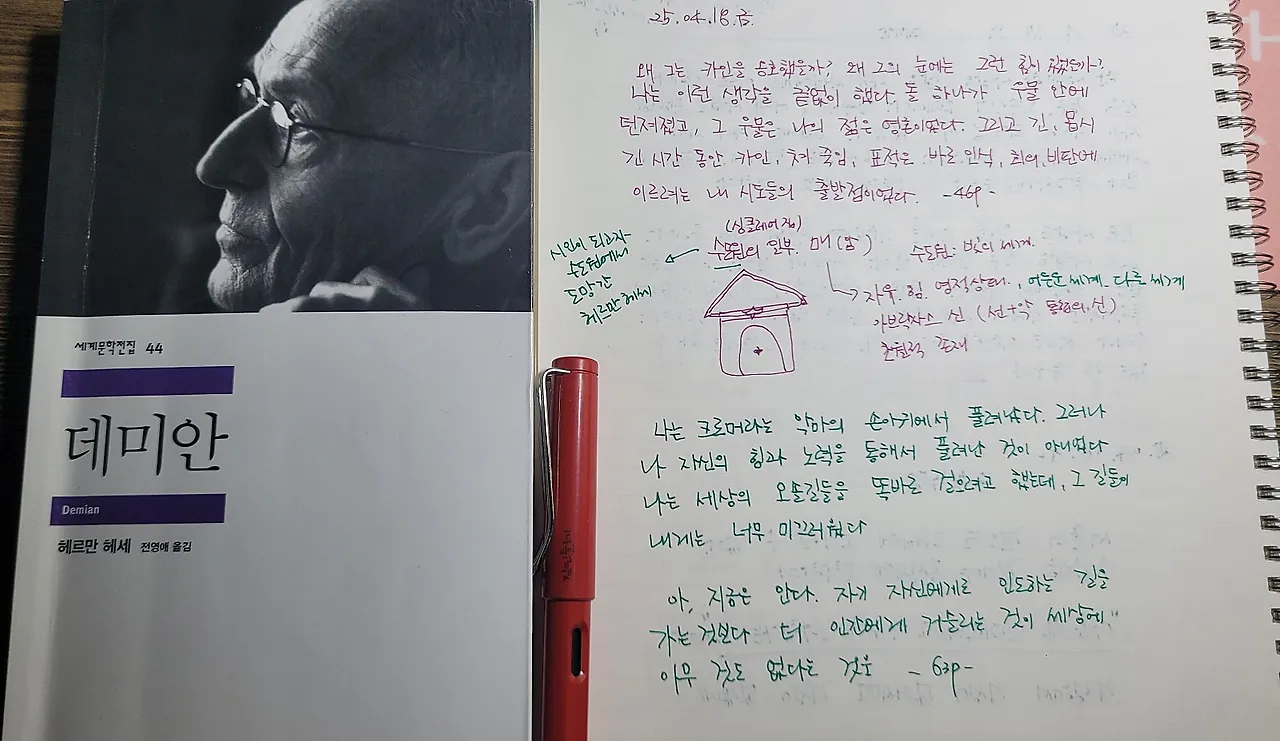 세계문학전집 44
데미안
Demian
헤르만 헤세 전영애 옮김
25.04.18.금.
왜 그는 카인을 옹호했을까? 왜 그의 눈에는 그런 힘이 있었는가?
나는 이런 생각을 끝없이 했다. 돌 하나가 우물 안에
던져졌고, 그 우물은 나의 젊은 영혼이었다. 그리고 긴, 몹시
긴 시간 동안 카인, 쳐 죽임, 표적은 바로 인식, 회의, 비판에
이르려는 내 시도들의 출발점이었다. -46p-
(싱클레어 집)
수도원의 일부. 매(알)
수도원: 빛의 세계.
시인이 되고자
수도원에서
도망간
헤르만 헤세
자유. 힘. 영적상태., 어두운 세계_ 다른 세계
아브락사스 신 (선+악 통합의.신)
초월적 존재
나는 크로머라는 악마의 손아귀에서 풀려났다. 그러나
나 자신의 힘과 노력을 통해서 풀려난 것이 아니었다
나는 세상의 오솔길들을 똑바로 걸으려고 했는데, 그 길들이
내게는 너무 미끄러웠다
아, 지금은 안다. 자기 자신에게로 인도하는 길을
가는 것보다 더 인간에게 거슬리는 것이 세상에
아무 것도 없다는 것을 - 63p-